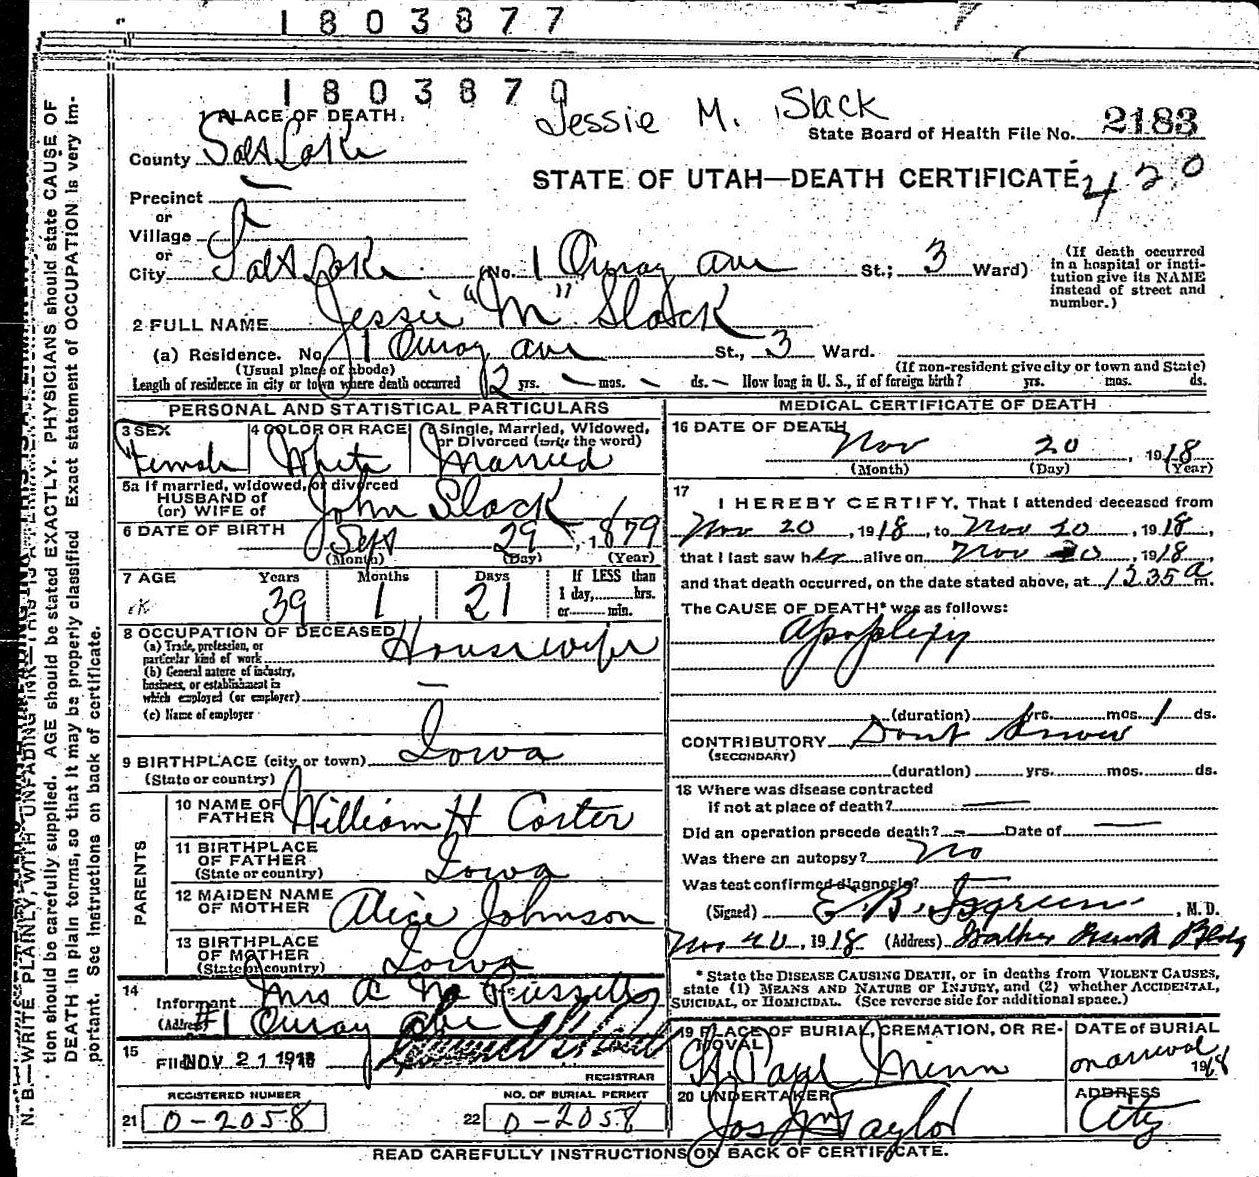 1803877
1803870
Jessie M. Slack
1 PLACE OF DEATH.
State Board of Health File No. 2183
County Salt Lake
STATE OF UTAH—DEATH CERTIFICATE
420
Precinct
or
Village
or
City Salt Lake (No. 1 Ouray Ave St.; 3 Ward)
(If death occurred in a hospital or insti-
tution give its NAME
instead of street and
number.)
2 FULL NAME Jessie "M" Slack
(a) Residence. No. 1 Ouray ave St., 3 Ward.
(Usual place of abode) (If non-resident give city or town and State)
Length of residence in city or town where death occurred 12 yrs. — mos. — ds. — How long in U. S., if of foreign birth? yrs. mos. ds.
PERSONAL AND STATISTICAL PARTICULARS
3 SEX Female
4 COLOR OR RACE White
5 Single, Married, Widowed, or Divorced (write the word) Married
5a If married, widowed, or divorced
HUSBAND of
(or) WIFE of John Slack
6 DATE OF BIRTH Sept 29, 1879
(Month) (Day) (Year)
7 AGE Years 39 Months 1 Days 21
If LESS than
1 day, hrs.
or min.
8 OCCUPATION OF DECEASED
(a) Trade, profession, or
particular kind of work Housewife
(b) General nature of industry,
business, or establishment in
which employed (or employer) —
(c) Name of employer
9 BIRTHPLACE (city or town) Iowa
(State or country)
PARENTS
10 NAME OF FATHER William H Carter
11 BIRTHPLACE
OF FATHER
(State or country) Iowa
12 MAIDEN NAME
OF MOTHER Alice Johnson
13 BIRTHPLACE
OF MOTHER
(State or country) Iowa
14
Informant Mrs A M Russell
(Address) #1 Ouray ave
15
Filed NOV 21 1918
REGISTRAR
REGISTERED NUMBER
21 0-2058
NO. OF BURIAL PERMIT
22 0-2058
MEDICAL CERTIFICATE OF DEATH
16 DATE OF DEATH
Nov 20, 1918
(Month) (Day) (Year)
17
I HEREBY CERTIFY, That I attended deceased from
Nov 20, 1918, to Nov 20, 1918,
that I last saw her alive on Nov 20, 1918,
and that death occurred, on the date stated above, at 1235 a m.
The CAUSE OF DEATH* was as follows:
Apoplexy
(duration) yrs. mos. 1 ds.
CONTRIBUTORY Dont know
(SECONDARY)
(duration) yrs. mos. ds.
18 Where was disease contracted
if not at place of death? —
Did an operation precede death? — Date of —
Was there an autopsy? No
Was test confirmed diagnosis?
(Signed) E. B. Isgreen, M. D.
Nov 20, 1918 (Address) Walker Bank Bldg
* State the DISEASE CAUSING DEATH, or in deaths from VIOLENT CAUSES,
state (1) MEANS AND NATURE OF INJURY, and (2) whether ACCIDENTAL,
SUICIDAL, or HOMICIDAL. (See reverse side for additional space.)
19 PLACE OF BURIAL, CREMATION, OR RE-
MOVAL
St. Paul Minn
DATE of BURIAL
on arrival 1918
20 UNDERTAKER
Jos Wm Taylor
ADDRESS
City
READ CAREFULLY INSTRUCTIONS ON BACK OF CERTIFICATE.
tion should be carefully supplied. AGE should be stated EXACTLY. PHYSICIANS should state CAUSE OF
DEATH in plain terms, so that it may be properly classified. Exact statement of OCCUPATION is very im-
portant. See instructions on back of certificate.
N. B.—WRITE PLAINLY, WITH UNFADING INK—THIS IS A PERMANENT